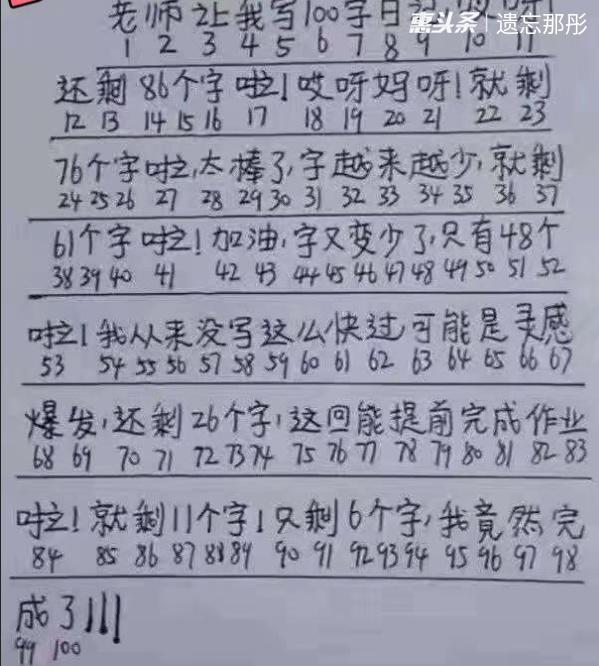 惠头条 / 遗忘那彤
老师让我写100字日
1 2 3 4 5 6 7 8 9 10 11
还剩86个字啦!哎呀妈呀!就剩
12 13 14 15 16 17 18 19 20 21 22 23
76个字啦,太棒了,字越来越少,就剩
24 25 26 27 28 29 30 31 32 33 34 35 36 37
61个字啦!加油,字又变少了,只有48个
38 39 40 41 42 43 44 45 46 47 48 49 50 51 52
啦!我从来没写这么快过可能是灵感
53 54 55 56 57 58 59 60 61 62 63 64 65 66 67
爆发,还剩26个字,这回能提前完成作业
68 69 70 71 72 73 74 75 76 77 78 79 80 81 82 83
啦!就剩11个字!只剩6个字,我竟然完
84 85 86 87 88 89 90 91 92 93 94 95 96 97 98
成了!!!
99 100